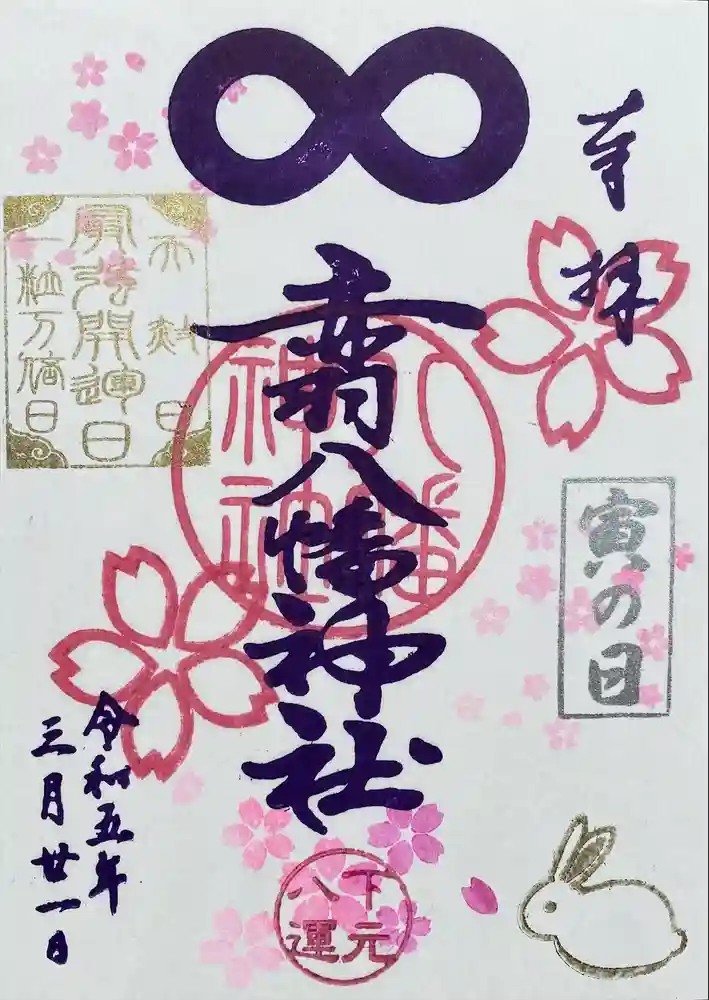 奉拝
八幡神社
八幡
神社
天赦日
最強開運日
一粒万倍日
寅の日
令和五年
三月廿一日
下元
八運